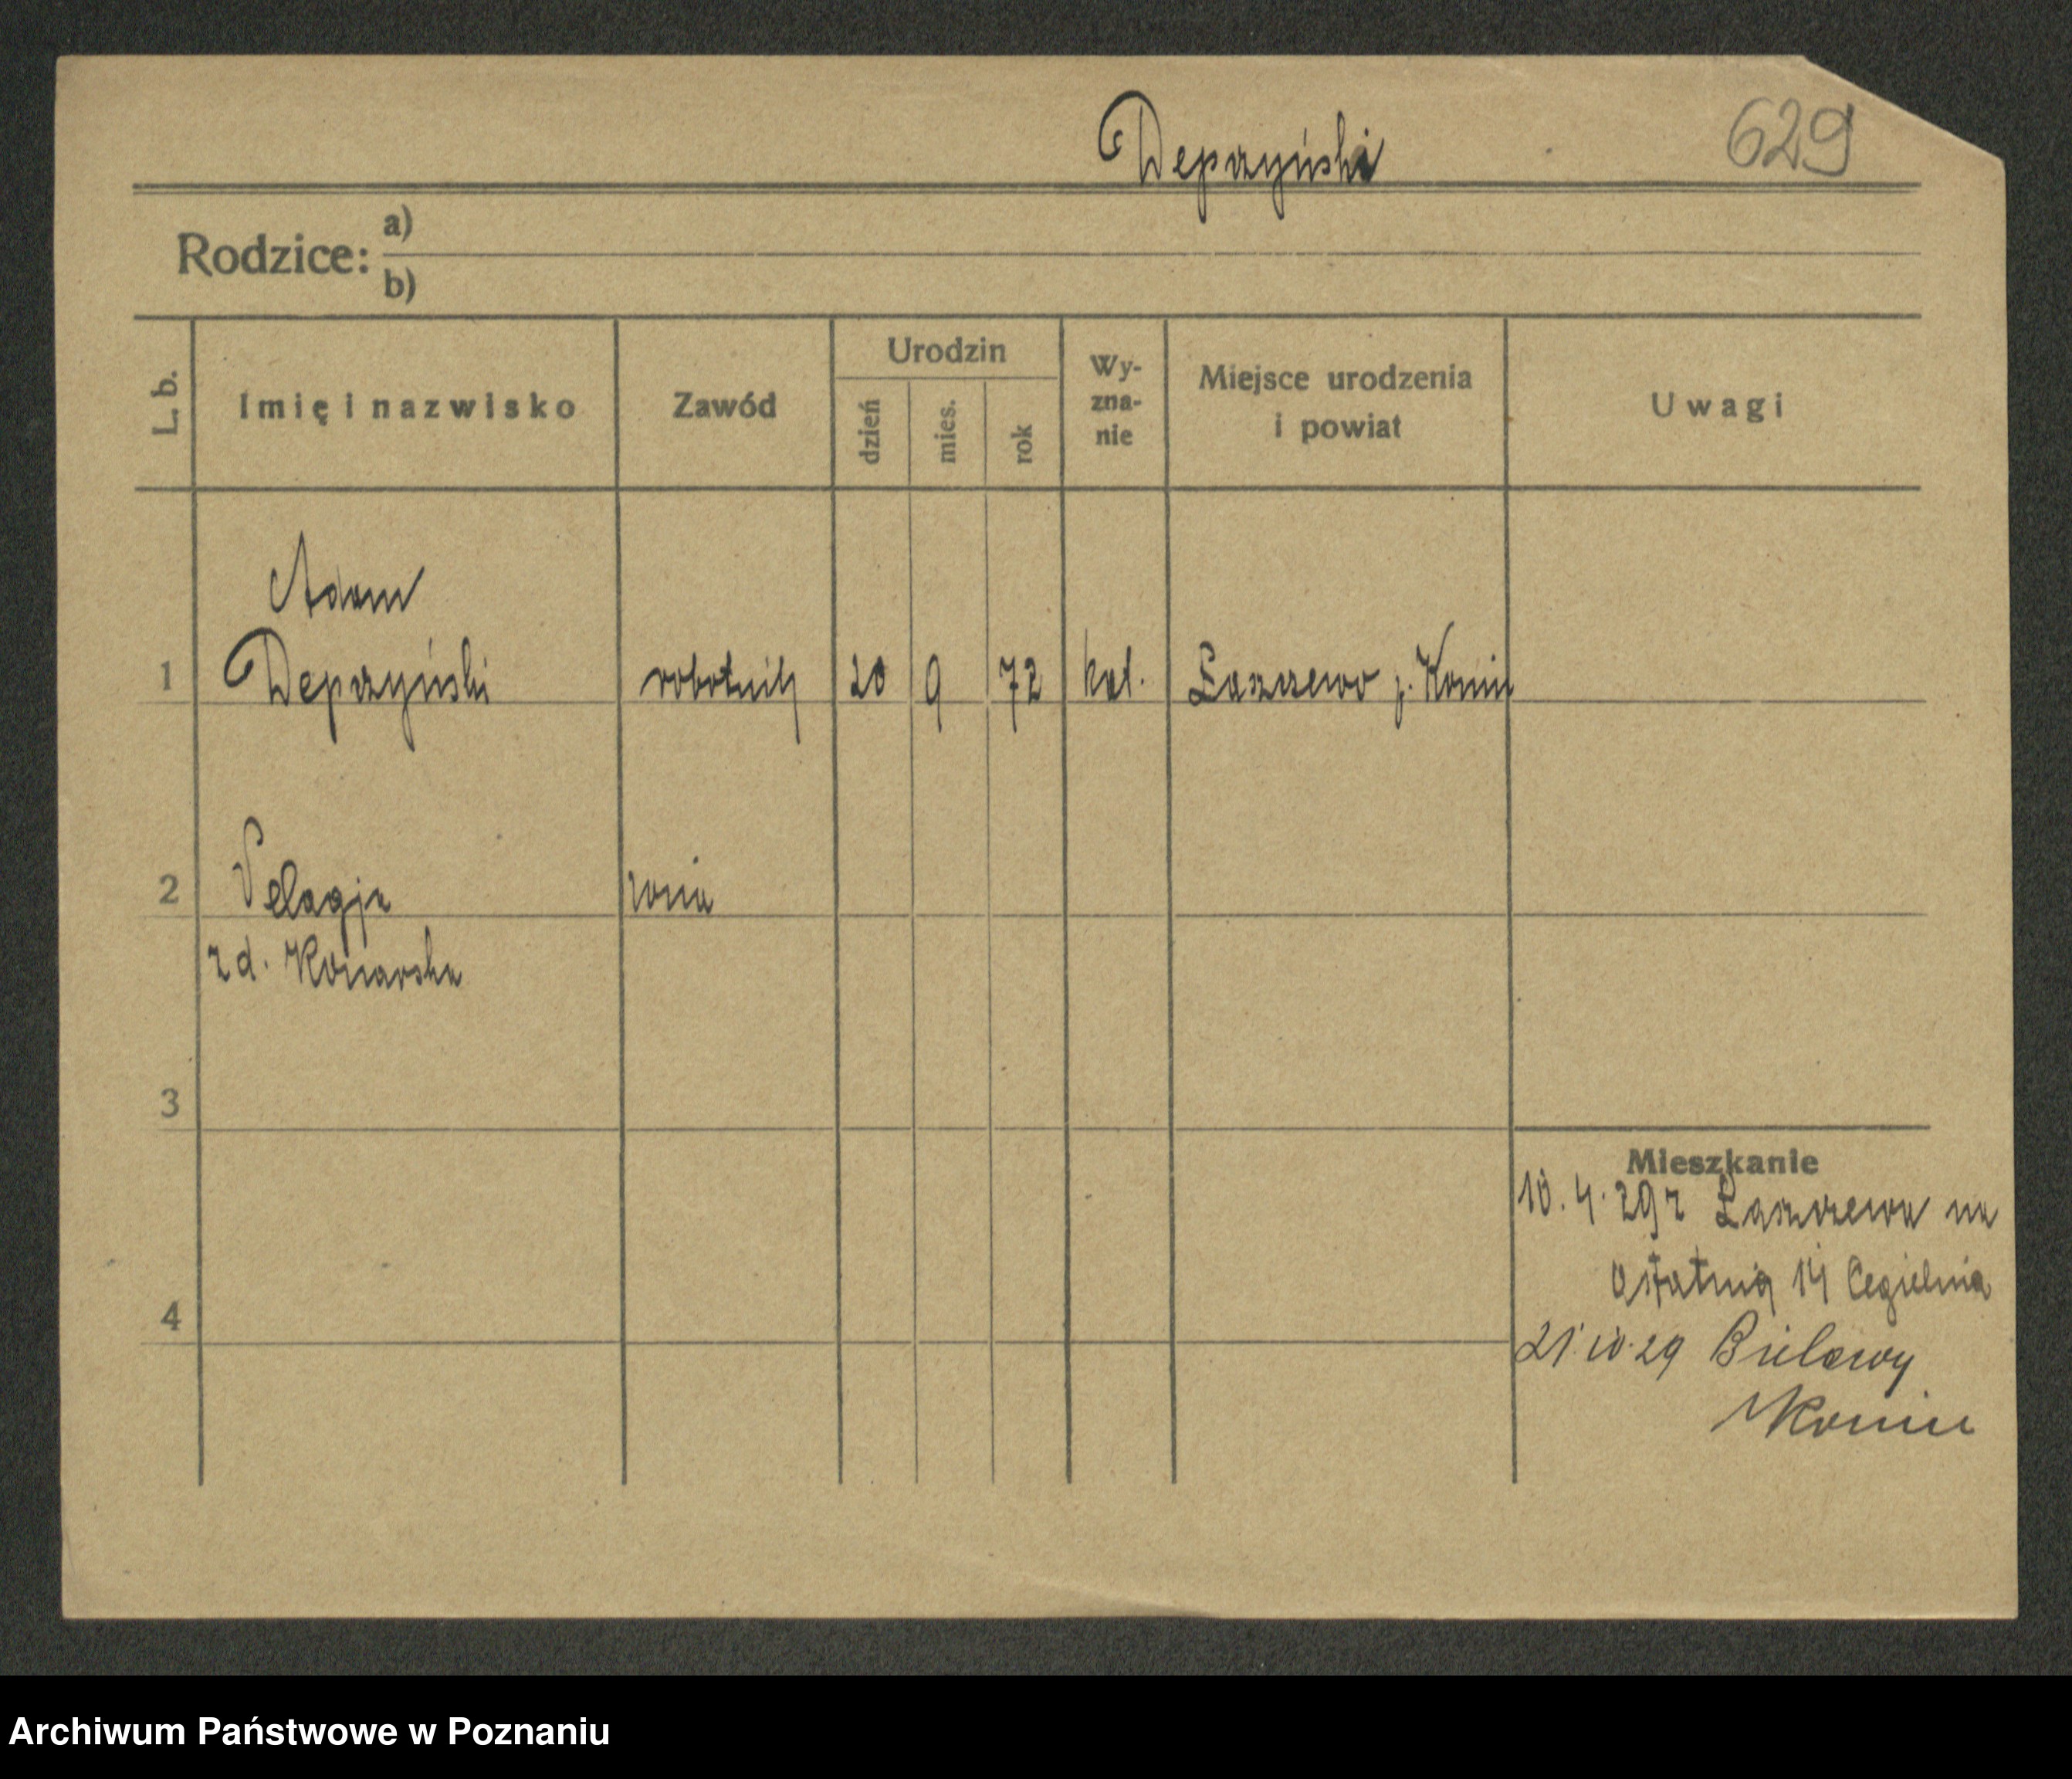 Depczyński 629
Rodzice: a)
b)
L. b. Imię i nazwisko Zawód Urodzin dzień mies. rok Wy-zna-nie Miejsce urodzenia i powiat Uwagi
Adam
1 Depczyński robotnik 20 9 72 kat. Łaszczewo p. Konin
2 Pelagja żona
z d. Konarska
3
Mieszkanie
10.4.29 z Łaszczewa na
Ostatnią 14 Cegielnia
4
21 10. 29 Bielawy
Konin
Archiwum Państwowe w Poznaniu